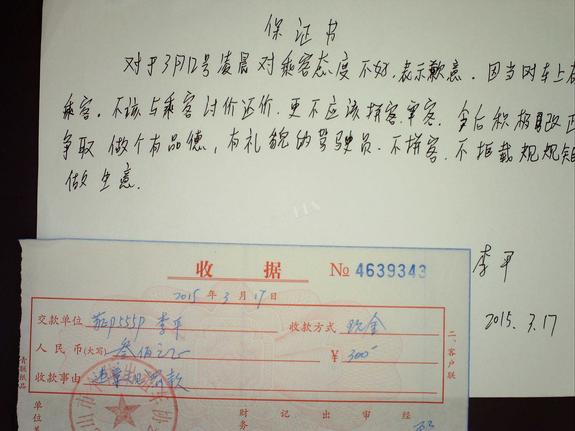 保证书
对于3月12号凌晨对乘客态度不好,表示歉意. 因当时车上有
乘客. 不该与乘客讨价还价. 更不应该拼客.宰客. 今后积极改正
争取做个有品德,有礼貌的驾驶员. 不拼客. 不拒载 规规矩矩
做生意.
李平
2015.3.17
收据 № 4639343
2015年3月17日
交款单位 李平 收款方式 现金
人民币(大写) 叁佰元 ¥ 300
收款事由 违章 款
二、客户联
财务 记 出 审 经